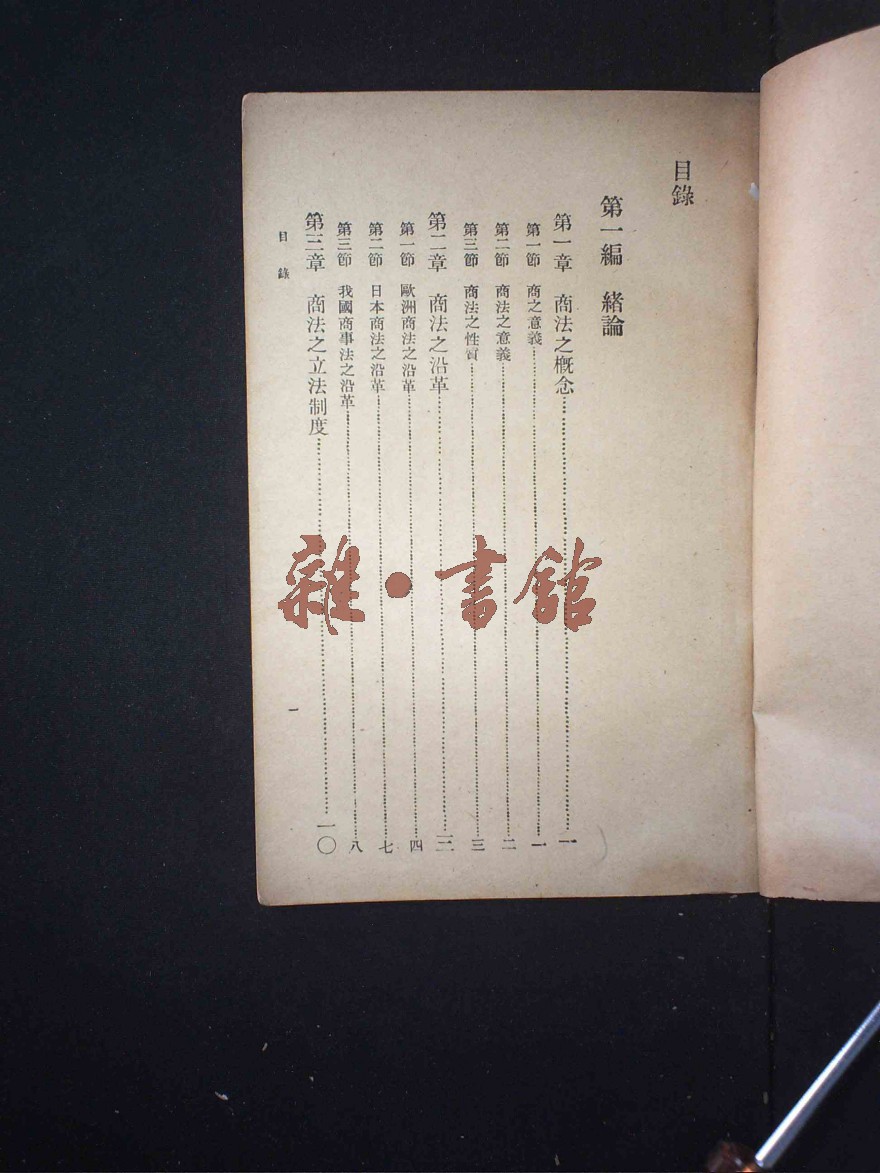 目錄
第一編 緒論
第一章 商法之概念……一
第一節 商之意義……一
第二節 商法之意義……二
第三節 商法之性質……三
第二章 商法之沿革……三
第一節 歐洲商法之沿革……四
第二節 日本商法之沿革……七
第三節 我國商事法之沿革……八
第三章 商法之立法制度……一〇
目錄
一
雜·書館